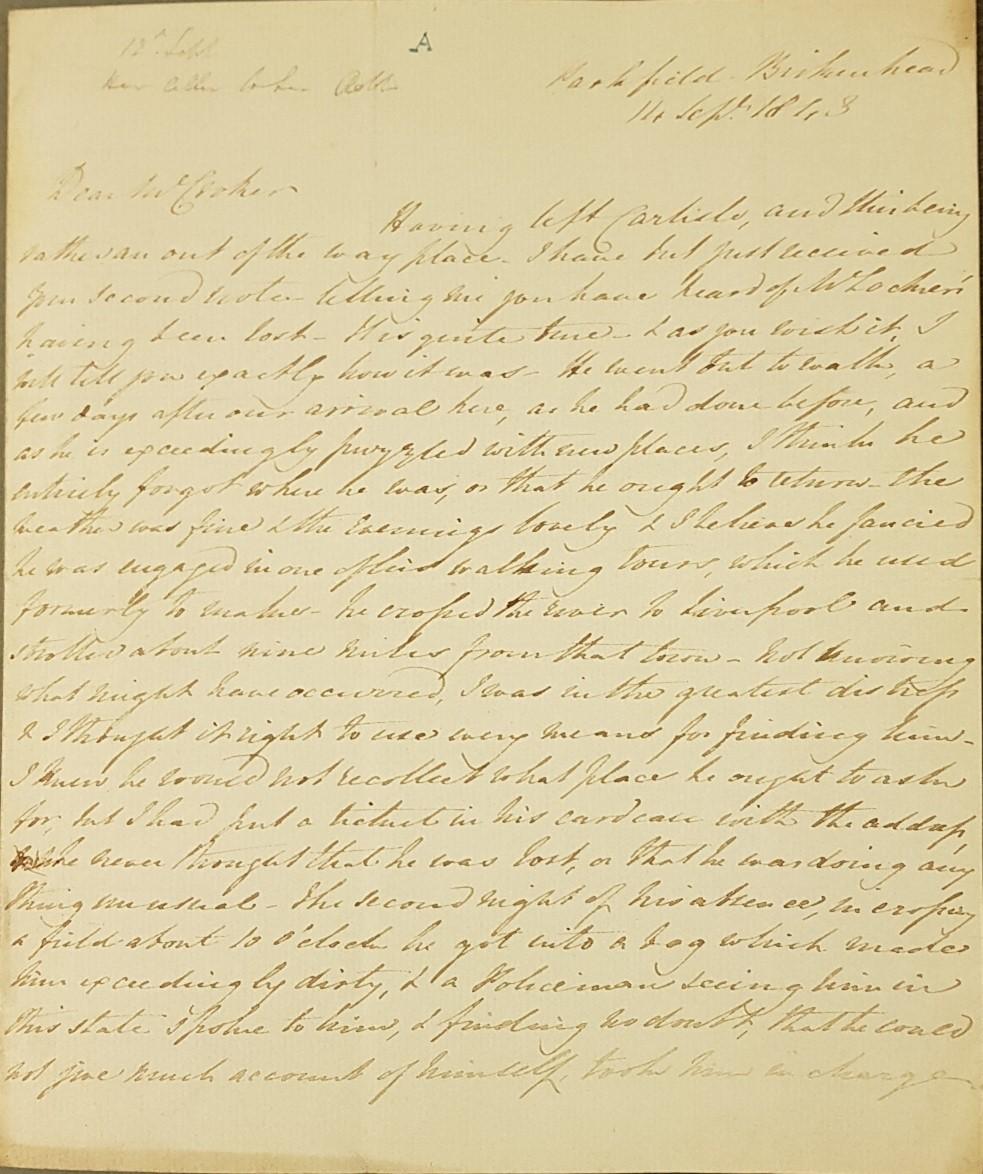 12th Sept
A
Parkfield Birkenhead
14 Sept. 1843
Dear Mr Croker
Having left Carlisle, and this being
rather an out of the way place - I have but just received
your second note - telling me you have heard of Mr Lochier's
having been lost - It is quite true - & as you wish it, I
will tell you exactly how it was - He went out to walk, a
few days after our arrival here, as he had done before, and
as he is exceedingly puzzled with new places, I think he
entirely forgot where he was, or that he ought to return - the
weather was fine & the Evenings lovely & I believe he fancied
he was engaged in one of his walking tours, which he used
formerly to make - he crossed the river to Liverpool and
strolled about nine miles from that town - Not knowing
what might have occurred, I was in the greatest distress
& I thought it right to use every means for finding him -
I knew he would not recollect what place he ought to ask
for, but I had put a ticket in his cardcase with the address,
he never thought that he was lost, or that he was doing any
thing unusual - The second night of his absence, in crossing
a field about 10 o'clock he got into a bog which made
him exceedingly dirty, & a Policeman seeing him in
this state spoke to him, & finding no doubt, that he could
not give much account of himself, took him in charge